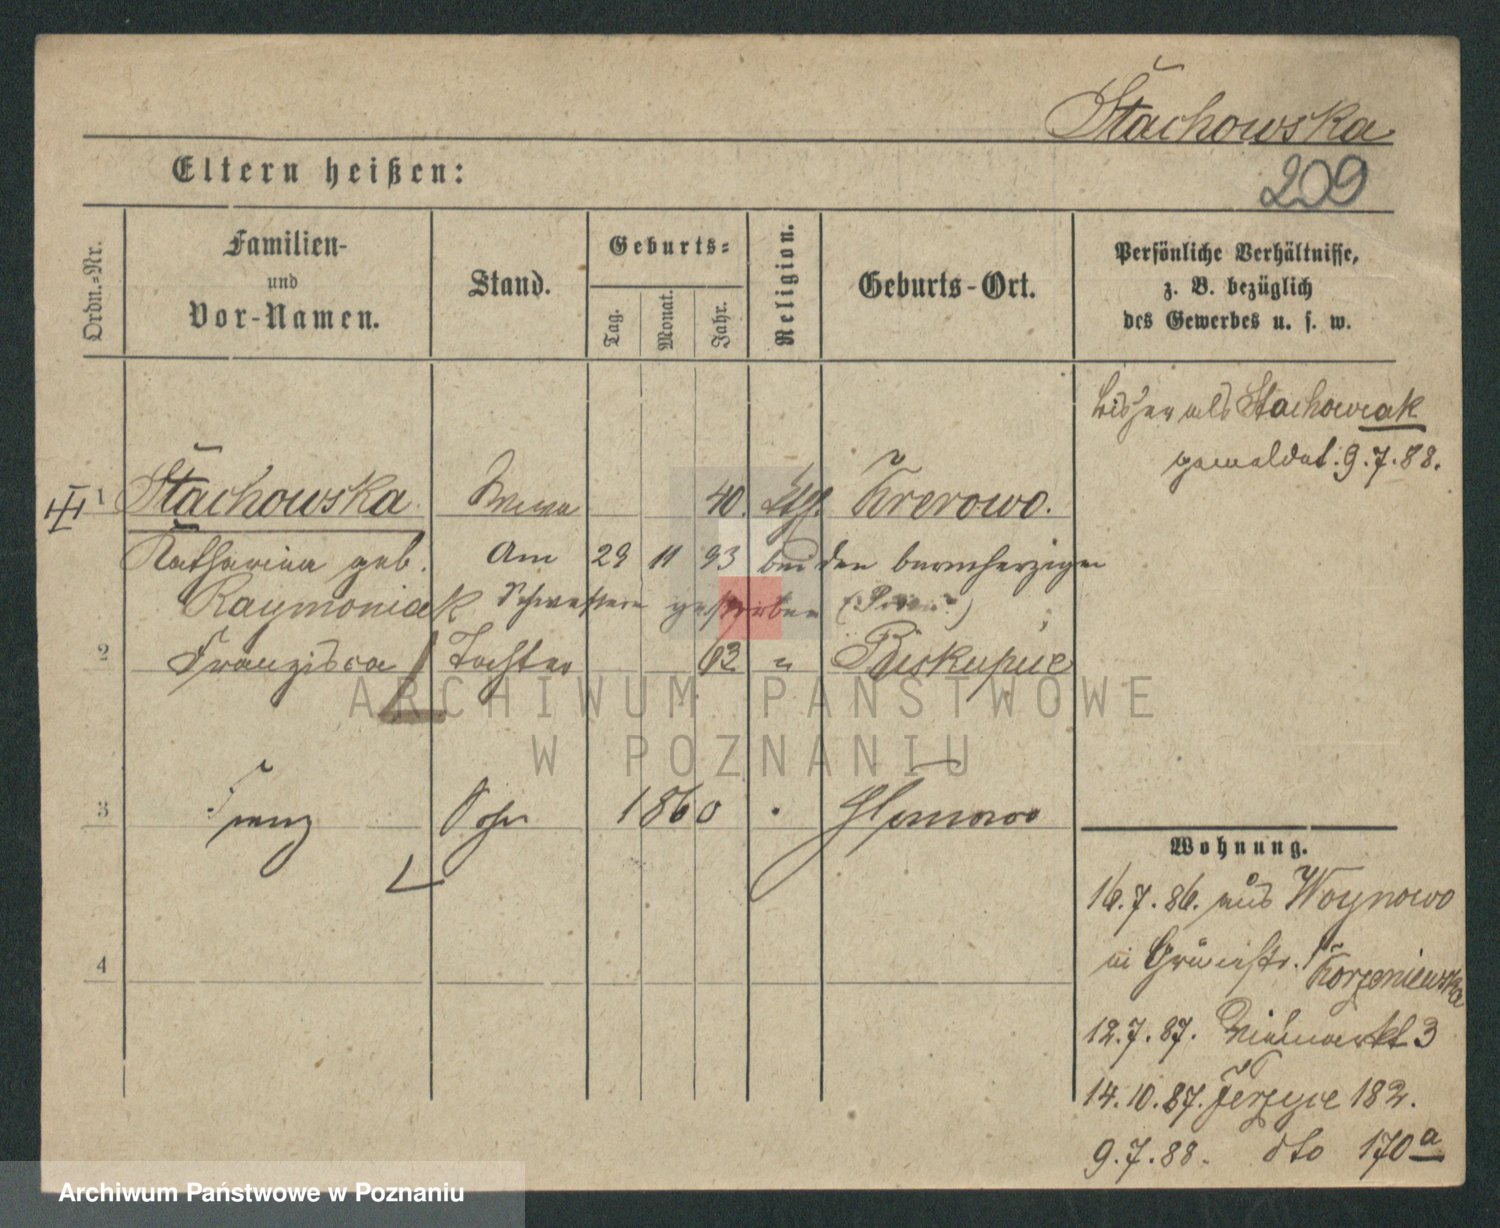 Stachowska
209
Eltern heißen:
Ordn.-Nr.
Familien-
und
Vor-Namen.
Stand.
Geburts-
Tag.
Monat.
Jahr.
Religion.
Geburts-Ort.
Persönliche Verhältnisse,
z. B. bezüglich
des Gewerbes u. s. w.
bisher als Stachowiak
gemeldet. 9.7.88.
1 Stachowska Wwe 40. kth. Krerowo.
Katharina geb. Am 29 11 93 bei den barmherzigen
Raymoniak Schwestern gestorben (Posen)
2 Franziska Tochter 63 " Biskupice
ARCHIWUM PAŃSTWOWE
W POZNANIU
3 Franz Sohn 1860
Wohnung.
16.7.86. aus Woynowo
in Grünestr. Korzeniewska
4
12.7.87. Viehmarkt 3
14.10.87. Jerzyce 182.
9.7.88. dto 170a
Archiwum Państwowe w Poznaniu